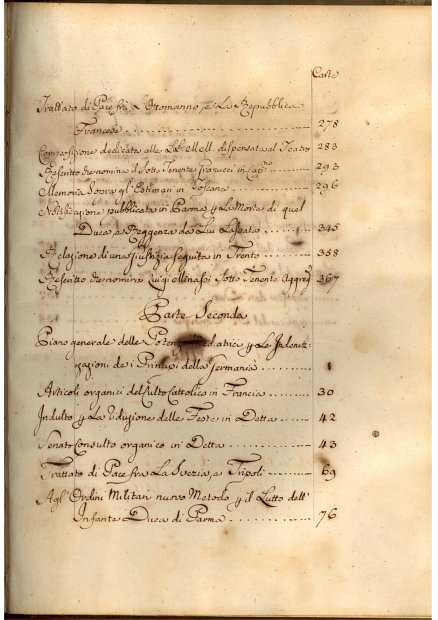 Carte
Trattato di Pace frà L'Otomanno, e La Repubblica
Francese 278
Composizione dedicata alle LL: MM. dispensata al Teatro 283
Rescritto che nomina il Sotto Tenente Granucci in Cap.no 293
Memoria Sopra gl'Estimari in Toscana 296
Notificazione pubblicata in Parma p La Morte di quel
Duca, e Reggenza da Lui Lasciata 345
Relazione di una Giustizia seguita in Trento 358
Rescritto che nomina Luigi Minassi Sotto Tenente Aggreg 367
Parte Seconda
Piano generale delle Potenze Mediatrici p Le Indeniz-
zazioni de i Principi della Germania 1
Articoli organici del Culto Cattolico in Francia 30
Indulto p La riduzione delle Feste in Detta 42
Senato Consulto organico in Detta 43
Trattato di Pace fra La Svezia, e Tripoli 69
Agl'Ordini Militari nuovo Metodo p il Lutto dell'
Infante Duca di Parma 76